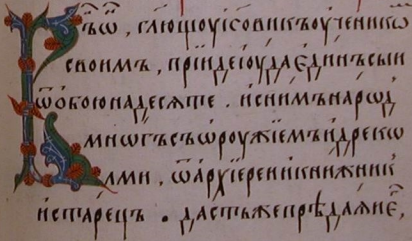 Въѡ҃, гл҃ющоуі҃совикъоученикѡ
своимъ, прїидеіоудаєдинъсъіи
ѿобоюнадесѧте . иснимънарѡд
мнѡгъсъѡроужїемъидрекѡ
лми, ѿархїереиикнижник
истарець . дастъжепрѣдаѧиє,